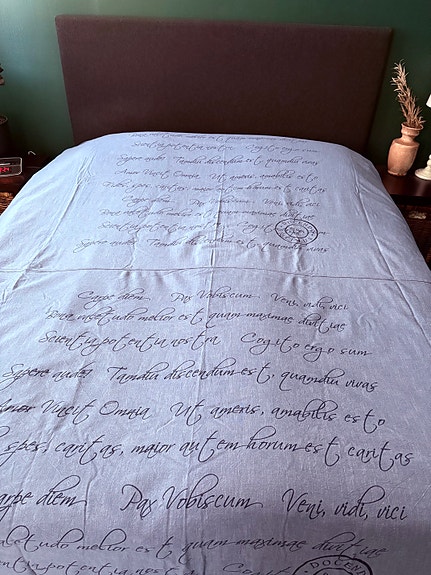 melior est quam
Scientia potentia nostra Cogito ergo sum
Sypere audes Tamdiu discendum est, quamdiu vivas
Amor Vincit Omnia Ut ameris, amabilis esto
spes, caritas, maior autem horum est caritas
Carpe diem Pax Vobiscum Veni, vidi, vici
Bona valetudo melior est quam maximae divitiae
Scientia potentia nostra Cogito
DOCEN
Sypere audes Tamdiu discendum est, quamdiu vivas
Carpe diem Pax Vobiscum Veni, vidi, vici
Bona valetudo melior est quam maximae divitiae
Scientia potentia nostra Cogito ergo sum
Sypere audes Tamdiu discendum est, quamdiu vivas
Amor Vincit Omnia Ut ameris, amabilis esto
spes, caritas, maior autem horum est caritas
Carpe diem Pax Vobiscum Veni, vidi, vici
valetudo melior est quam maximae divitiae
potentia nostra Cogito
DOCEN